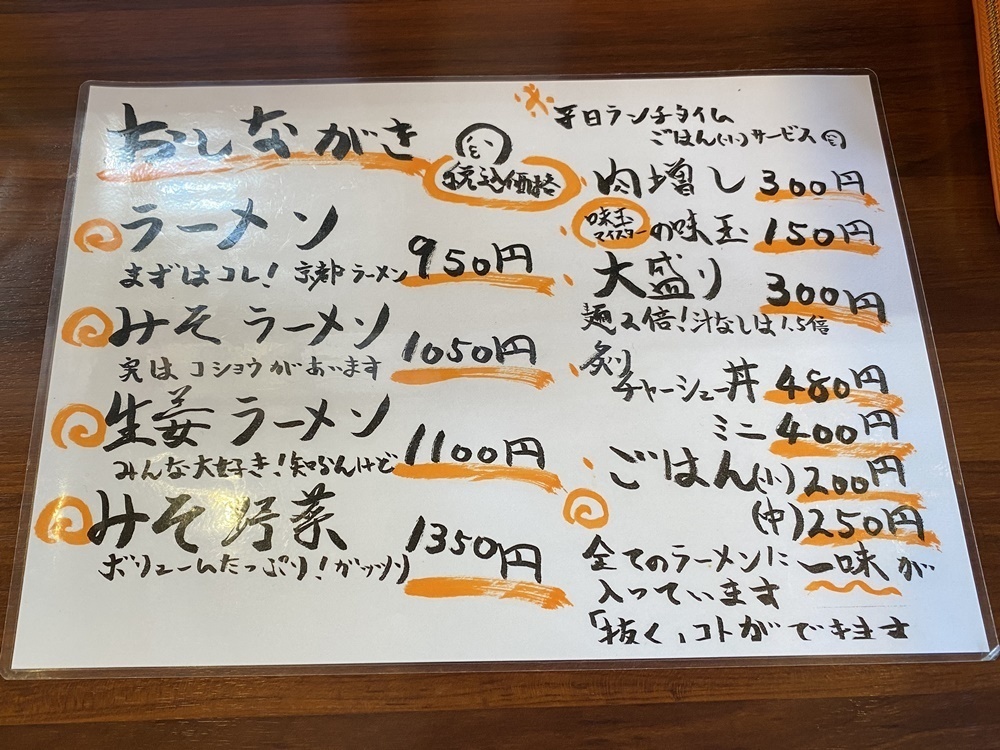 おしながき
税込価格
ラーメン 950円
まずはコレ！京都ラーメン
みそラーメン 1050円
実はコショウがあいます
生姜ラーメン 1100円
みんな大好き！知らんけど
みそ野菜 1350円
ボリュームたっぷり！ガッツリ
※平日ランチタイム
ごはん(小)サービス
肉増し 300円
味玉マイスターの味玉 150円
大盛り 300円
麺2倍！汁なしは1.5倍
炙りチャーシュー丼 480円
ミニ 400円
ごはん(小) 200円
(中) 250円
全てのラーメンに一味が
入っています
「抜く」コトができます